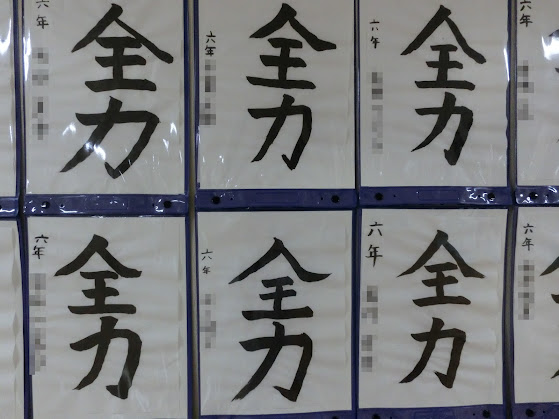 六年
全力
六年
全力
六年
全力
六年
六年
全力
六年
全力
六年
全力
六年